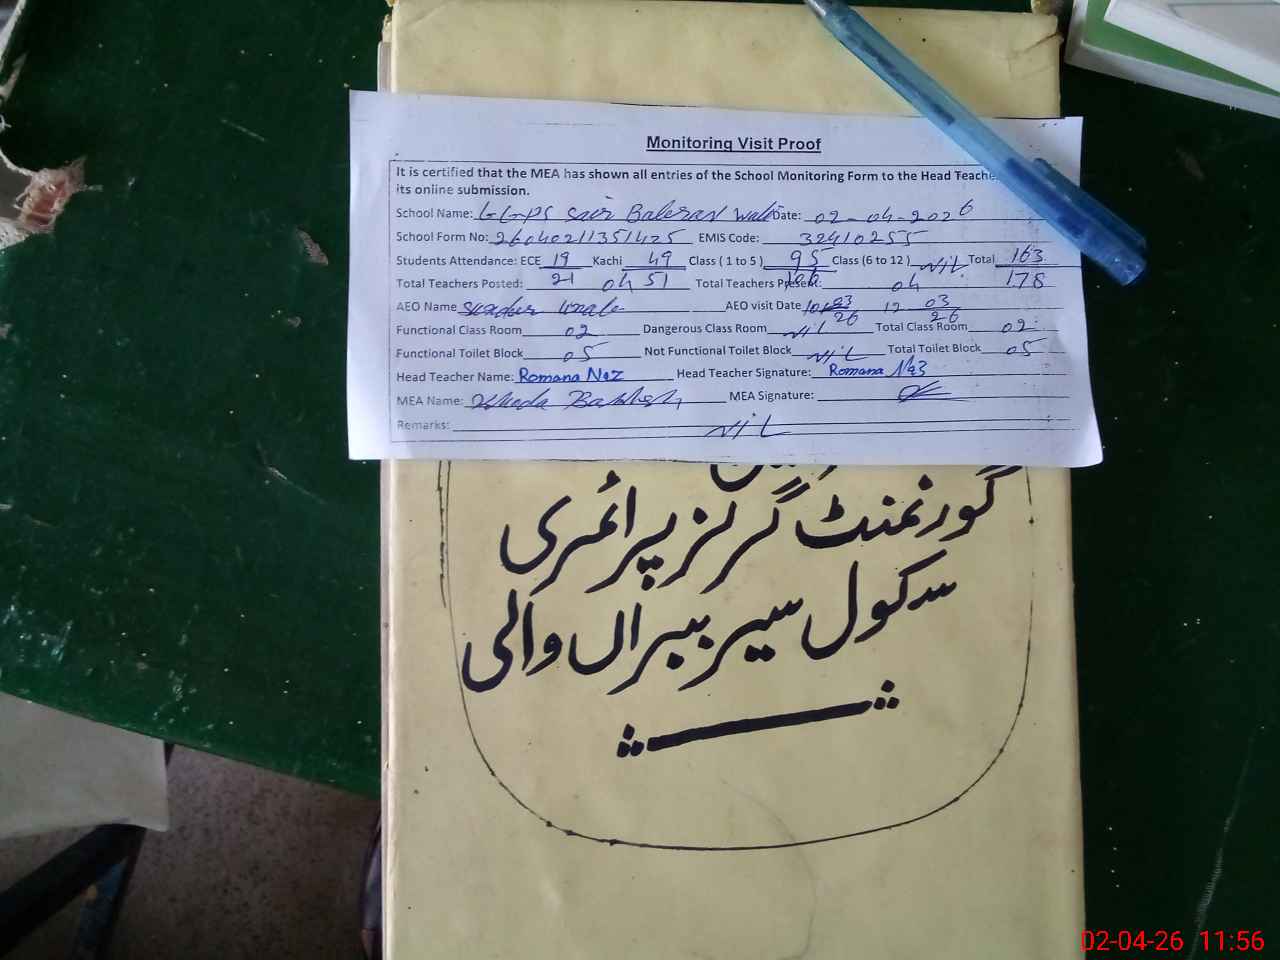 Monitoring Visit Proof
It is certified that the MEA has shown all entries of the School Monitoring Form to the Head Teache
its online submission.
School Name: GGPS Sair Baleran Wali Date: 02-04-2026
School Form No: 26040211351425 EMIS Code: 32410255
Students Attendance: ECE 19 Kachi 49 Class ( 1 to 5 ) 95 Class (6 to 12 ) NIL Total 163
21 51 106 178
Total Teachers Posted: 04 Total Teachers Present: 04
AEO Name AEO visit Date 12 03 26
Functional Class Room 02 Dangerous Class Room NIL Total Class Room 02
Functional Toilet Block 05 Not Functional Toilet Block NIL Total Toilet Block 05
Head Teacher Name: Romana Naz Head Teacher Signature: Romana Naz
MEA Name: Bakhsh MEA Signature:
Remarks: NIL
گورنمنٹ گرلز پرائمری
سکول سیر ببراں والی
02-04-26 11:56